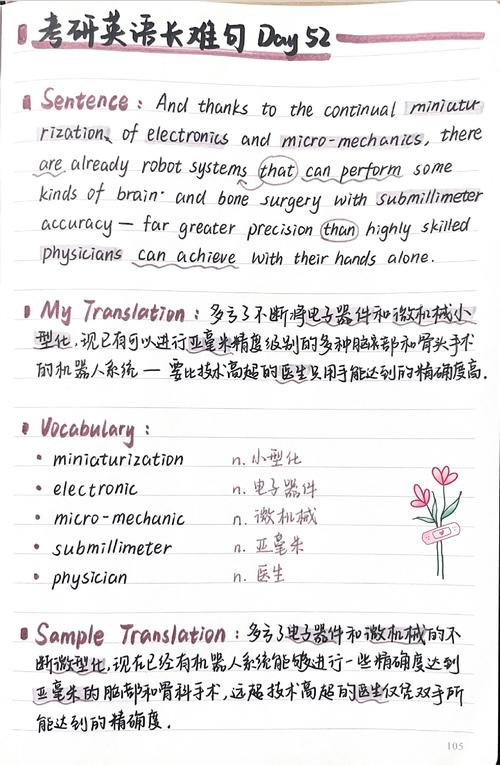 考研英语长难句 Day 52
Sentence: And thanks to the continual miniatur
rization of electronics and micro-mechanics, there
are already robot systems that can perform some
kinds of brain and bone surgery with submillimeter
accuracy — far greater precision than highly skilled
physicians can achieve with their hands alone.
My Translation: 多亏了不断将电子器件和微机械小
型化,现已有可以进行亚毫米精度级别的多种脑部和骨头手术
的机器人系统 — 要比技术高超的医生只用手能达到的精确度高.
Vocabulary:
miniaturization n. 小型化
electronic n. 电子器件
micro-mechanic n. 微机械
submillimeter n. 亚毫米
physician n. 医生
Sample Translation: 多亏了电子器件和微机械的不
断微型化,现在已经有机器人系统能够进行一些精确度达到
亚毫米的脑部和骨科手术,远超技术高超的医生仅凭双手所
能达到的精确度.
105